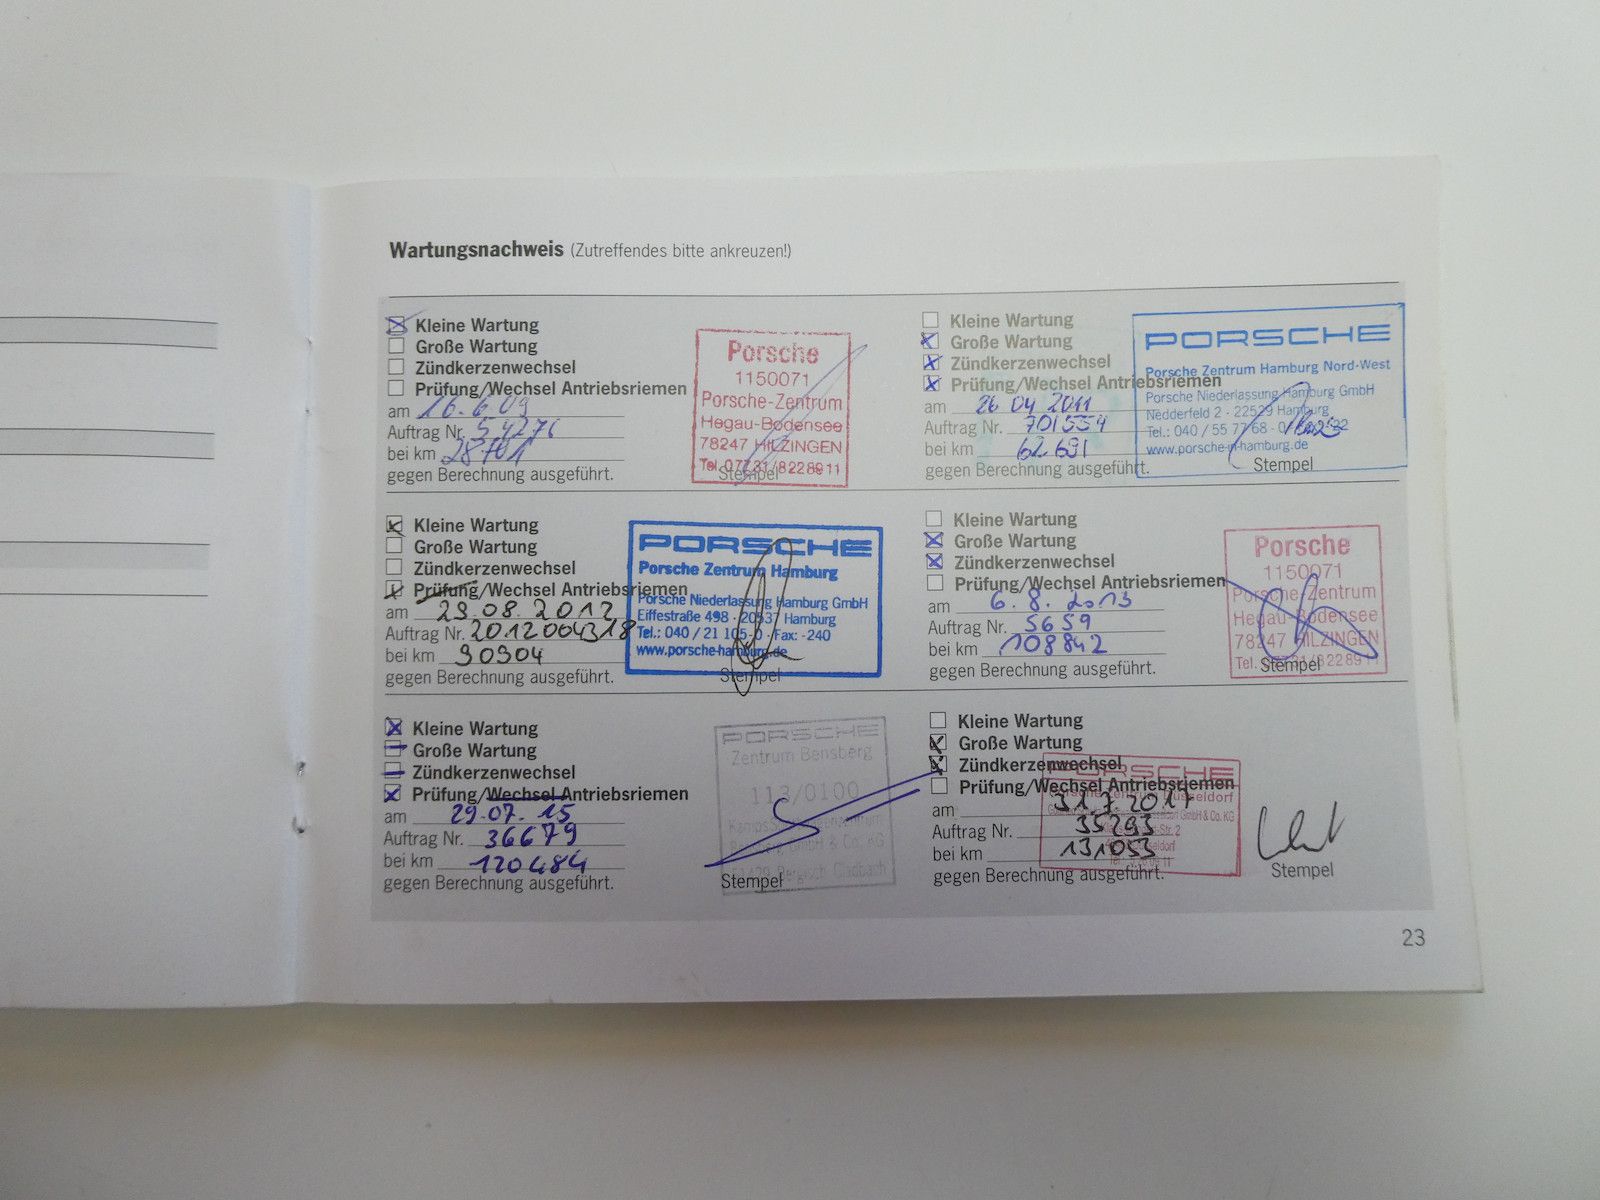 Wartungsnachweis (Zutreffendes bitte ankreuzen!)
Kleine Wartung
Große Wartung
Zündkerzenwechsel
Prüfung/Wechsel Antriebsriemen
am 16.6.09
Auftrag Nr. 54276
bei km 28701
gegen Berechnung ausgeführt.
Porsche
1150071
Porsche-Zentrum
Hegau-Bodensee
78247 HILZINGEN
Tel. 07731/8228911
Stempel
Kleine Wartung
Große Wartung
Zündkerzenwechsel
Prüfung/Wechsel Antriebsriemen
am 26 04 2011
Auftrag Nr. 701554
bei km 62.691
gegen Berechnung ausgeführt.
PORSCHE
Porsche Zentrum Hamburg Nord-West
Porsche Niederlassung Hamburg GmbH
Nedderfeld 2 - 22529 Hamburg
Tel.: 040 / 55 77 68 - 0
www.porsche-in-hamburg.de
Stempel
Kleine Wartung
Große Wartung
Zündkerzenwechsel
Prüfung/Wechsel Antriebsriemen
am 29.08.2012
Auftrag Nr. 2012004318
bei km 90904
gegen Berechnung ausgeführt.
PORSCHE
Porsche Zentrum Hamburg
Porsche Niederlassung Hamburg GmbH
Eiffestraße 498 · 20537 Hamburg
Tel.: 040 / 21 105-0 · Fax: -240
www.porsche-hamburg.de
Stempel
Kleine Wartung
Große Wartung
Zündkerzenwechsel
Prüfung/Wechsel Antriebsriemen
am 6.8.2013
Auftrag Nr. 5659
bei km 108842
gegen Berechnung ausgeführt.
Porsche
1150071
Porsche-Zentrum
Hegau-Bodensee
78247 HILZINGEN
Tel.
Stempel
Kleine Wartung
Große Wartung
Zündkerzenwechsel
Prüfung/Wechsel Antriebsriemen
am 29.07.15
Auftrag Nr. 36679
bei km 120484
gegen Berechnung ausgeführt.
PORSCHE
Zentrum Bensberg
113/0100
GmbH & Co. KG
51429 Bergisch Gladbach
Stempel
Kleine Wartung
Große Wartung
Zündkerzenwechsel
Prüfung/Wechsel Antriebsriemen
am 31.7.2017
Auftrag Nr. 35293
bei km 131053
gegen Berechnung ausgeführt.
PORSCHE
Stempel
23